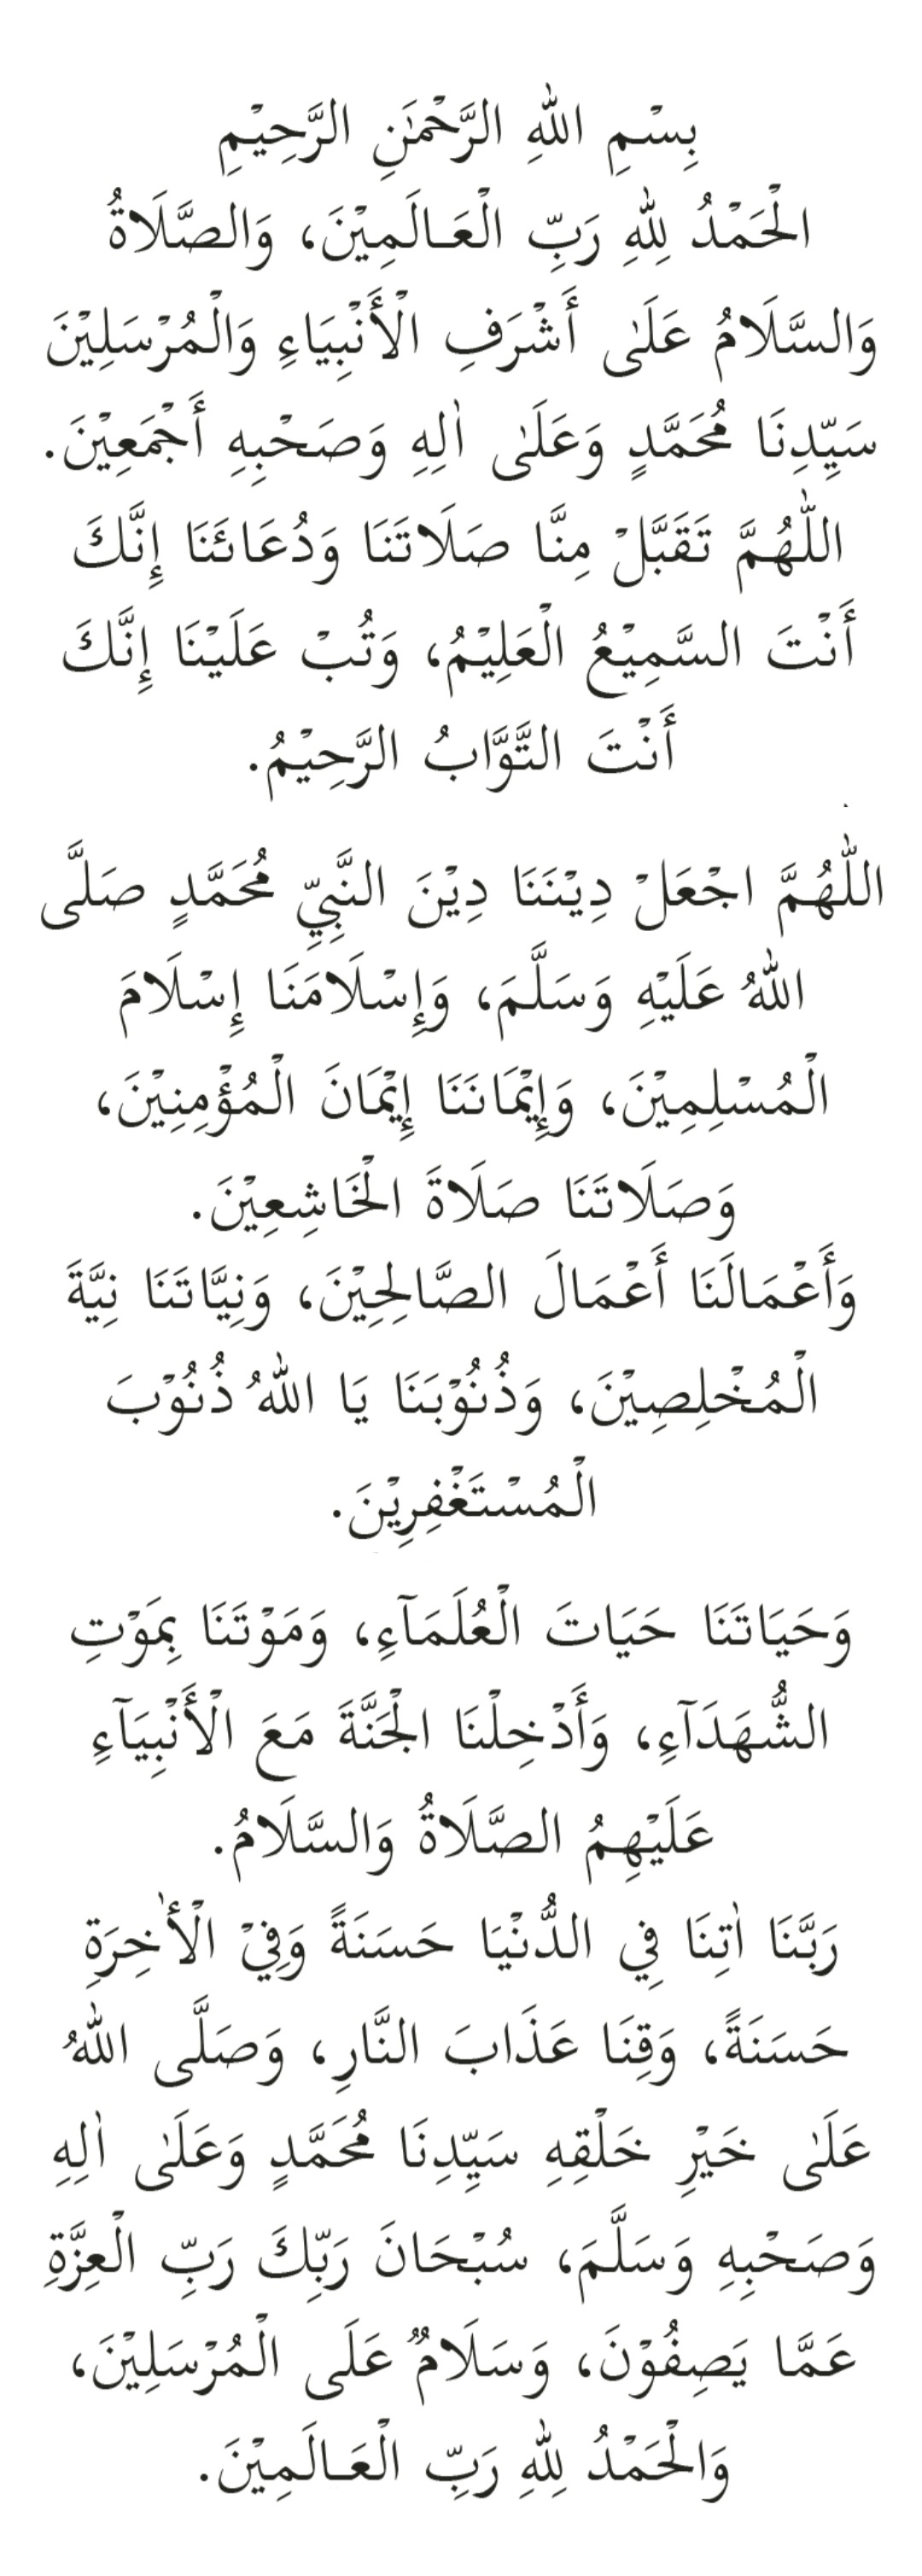 بِسْمِ اللهِ الرَّحْمٰنِ الرَّحِيْمِ
الْحَمْدُ لِلهِ رَبِّ الْعَـالَمِيْنَ، وَالصَّلَاةُ
وَالسَّلَامُ عَلَىٰ أَشْرَفِ الْأَنْبِيَاءِ وَالْمُرْسَلِيْنَ
سَيِّدِنَا مُحَمَّدٍ وَعَلَىٰ اٰلِهِ وَصَحْبِهِ أَجْمَعِيْنَ.
اللّٰهُمَّ تَقَبَّلْ مِنَّا صَلَاتَنَا وَدُعَائَنَا إِنَّكَ
أَنْتَ السَّمِيْعُ الْعَلِيْمُ، وَتُبْ عَلَيْنَا إِنَّكَ
أَنْتَ التَّوَّابُ الرَّحِيْمُ.
اللّٰهُمَّ اجْعَلْ دِيْنَنَا دِيْنَ النَّبِيِّ مُحَمَّدٍ صَلَّى
اللهُ عَلَيْهِ وَسَلَّمَ، وَإِسْلَامَنَا إِسْلَامَ
الْمُسْلِمِيْنَ، وَإِيْمَانَنَا إِيْمَانَ الْمُؤْمِنِيْنَ،
وَصَلَاتَنَا صَلَاةَ الْخَاشِعِيْنَ.
وَأَعْمَالَنَا أَعْمَالَ الصَّالِحِيْنَ، وَنِيَّاتَنَا نِيَّةَ
الْمُخْلِصِيْنَ، وَذُنُوْبَنَا يَا اللهُ ذُنُوْبَ
الْمُسْتَغْفِرِيْنَ.
وَحَيَاتَنَا حَيَاتَ الْعُلَمَآءِ، وَمَوْتَنَا بِمَوْتِ
الشُّهَدَآءِ، وَأَدْخِلْنَا الْجَنَّةَ مَعَ الْأَنْبِيَآءِ
عَلَيْهِمُ الصَّلَاةُ وَالسَّلَامُ.
رَبَّنَا اٰتِنَا فِي الدُّنْيَا حَسَنَةً وَفِيْ الْأٰخِرَةِ
حَسَنَةً، وَقِنَا عَذَابَ النَّارِ، وَصَلَّى اللهُ
عَلَىٰ خَيْرِ خَلْقِهِ سَيِّدِنَا مُحَمَّدٍ وَعَلَىٰ اٰلِهِ
وَصَحْبِهِ وَسَلَّمَ، سُبْحَانَ رَبِّكَ رَبِّ الْعِزَّةِ
عَمَّا يَصِفُوْنَ، وَسَلَامٌ عَلَى الْمُرْسَلِيْنَ،
وَالْحَمْدُ لِلهِ رَبِّ الْعَـالَمِيْنَ.